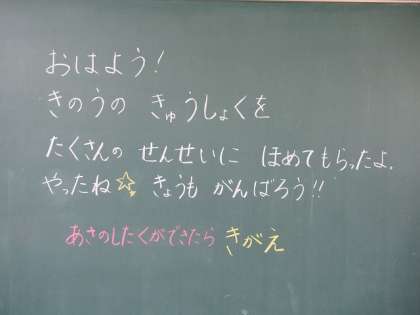 おはよう!
きのうの きゅうしょくを
たくさんの せんせいに ほめてもらったよ。
やったね☆ きょうも がんばろう!!
あさのしたくができたら きがえ